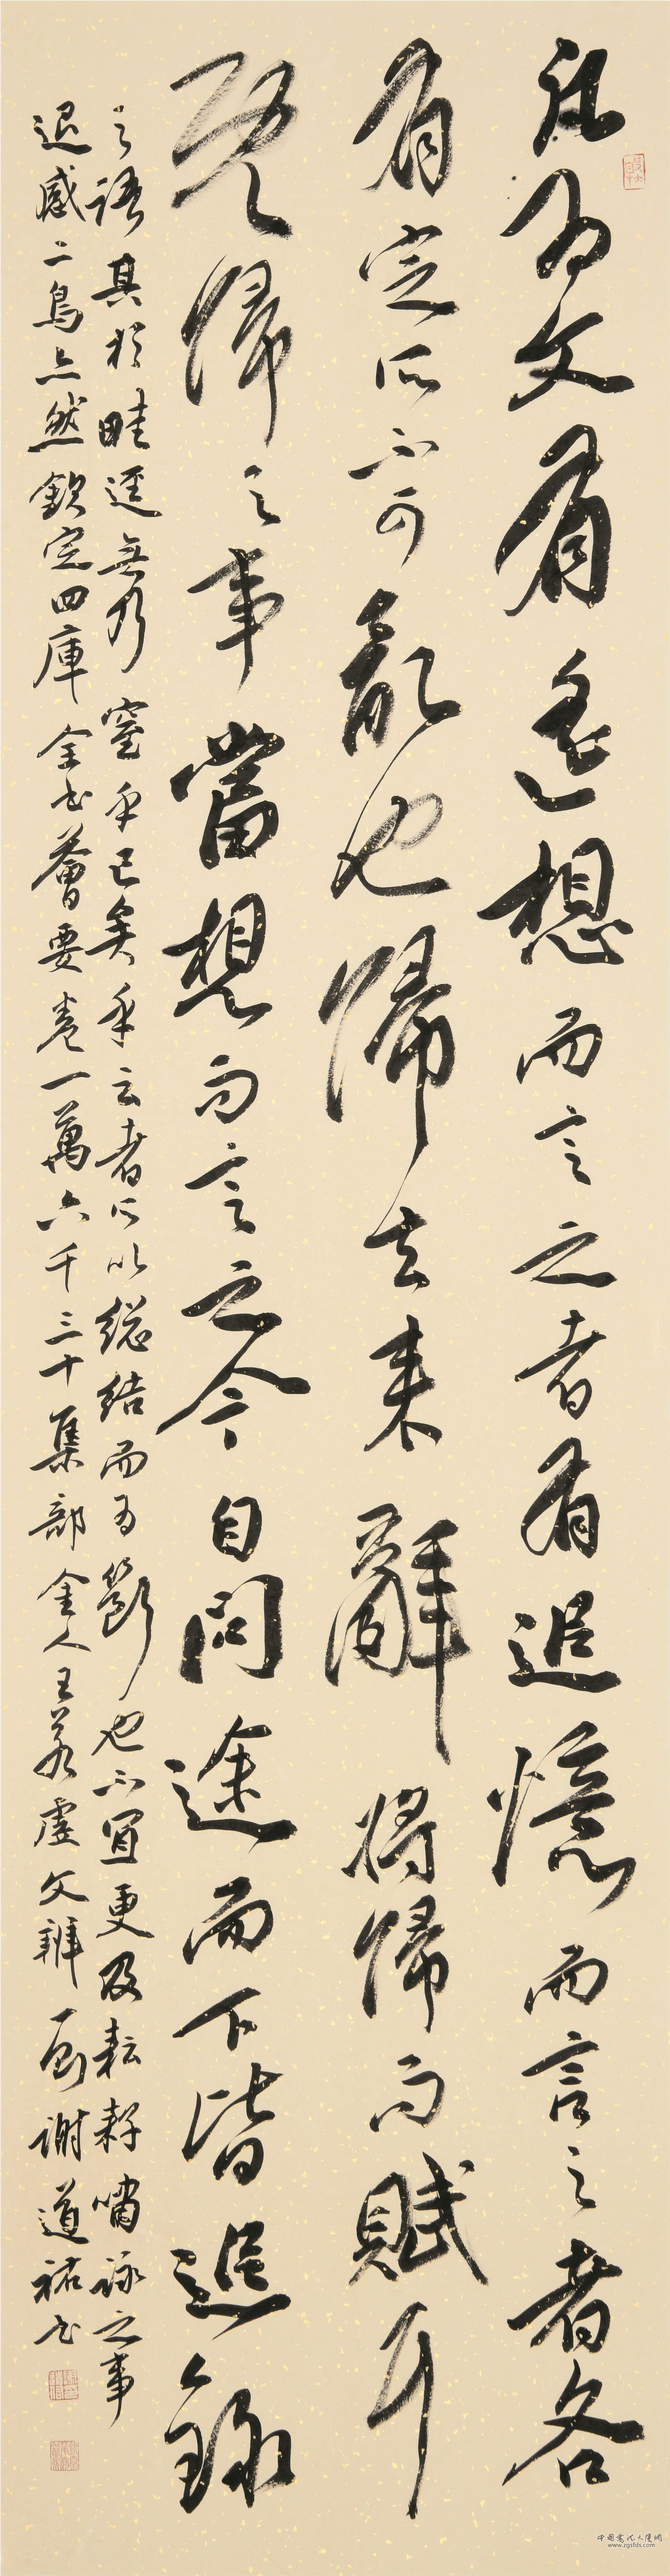 凡为文有遥想而言之者有追憶而言之者各
有定所不可亂也歸去来辭将歸而賦耳
既歸之事當想而言之今自問途而下皆追録
之語其於畦逕無乃窒乎已矣乎云者所以總結而为斷也不宜更及耘耔嘯詠之事
退感二鳥亦然欽定四庫全书薈要卷一萬六千三十集部金人王若虚文辨一則謝道祐书
中国书法大隱網
www.zgsfds.com